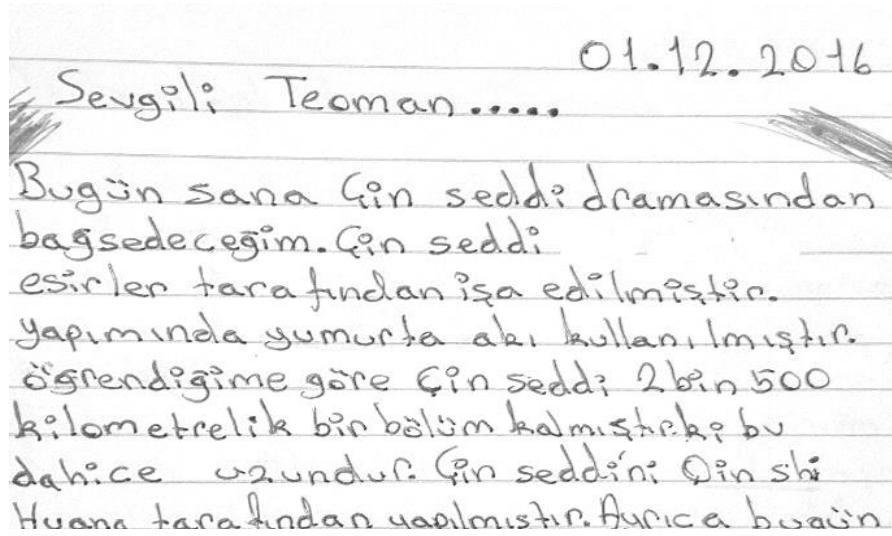 01.12.2016
Sevgili Teoman.....
Bugün sana Çin seddi dramasından
bağsedeceğim. Çin seddi
esirler tarafından işa edilmiştir.
yapımında yumurta akı kullanılmıştır.
öğrendiğime göre Çin seddi 2bin 500
kilometrelik bir bölüm kalmıştırki bu
dahice uzundur. Çin seddini Qin shi
Huang tarafından yapılmıştır. Ayrıca bugün